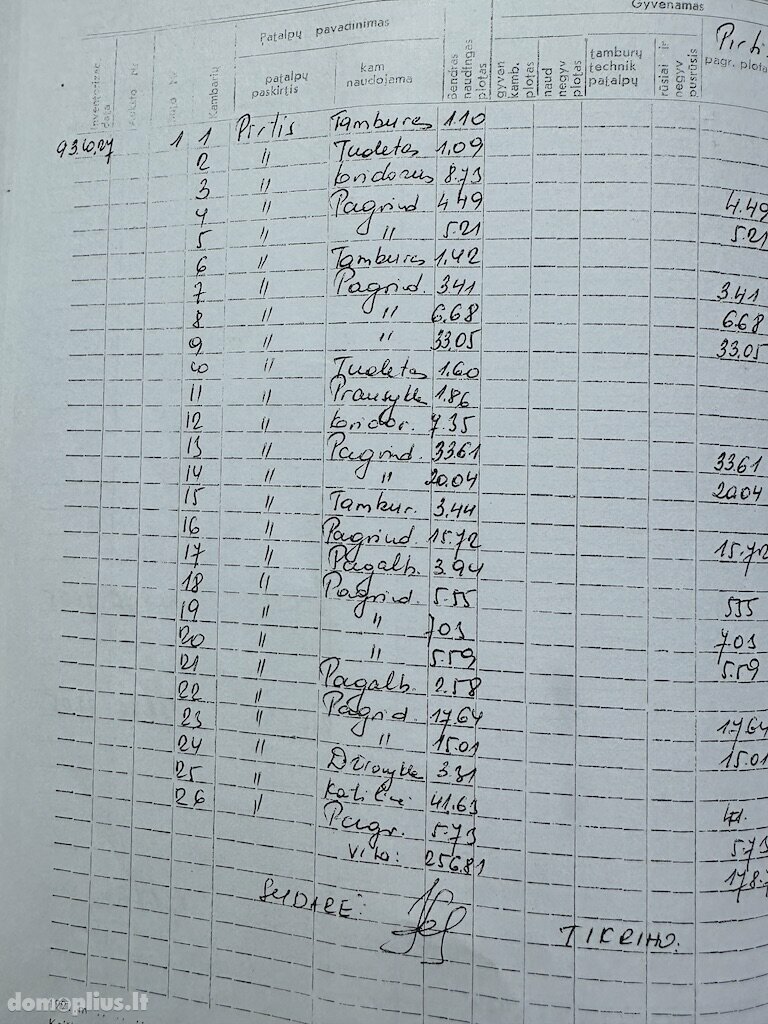 Patalpų pavadinimas Gyvenamas
Inventorizac. data Aukšto Nr. Kambarių patalpų paskirtis kam naudojama Bendras naudingas plotas gyven kamb. plotas naud negyv plotas tamburų technik patalpų rūsiai ir negyv pusrūsis Pirti
pagr. plota
93.10.27 1 1 Pirtis Tamburas 1.10
2 " Tualetas 1.09
3 " koridorius 8.73
4 " Pagrind 4.49 4.49
5 " " 5.21 5.21
6 " Tamburas 1.42
7 " Pagrind. 3.41 3.41
8 " " 6.68 6.68
9 " " 33.05 33.05
10 " Tualetas 1.60
11 " Prausykla 1.86
12 " koridor. 7.35
13 " Pagrind. 33.61 33.61
14 " " 20.04 20.04
15 " Tambur. 3.44
16 " Pagrind. 15.72 15.72
17 " Pagalb. 3.94
18 " Pagrind. 5.55 5.55
19 " " 7.03 7.03
20 " " 5.59 5.59
21 " Pagalb. 2.58
22 " Pagrid. 17.64 17.64
23 " " 15.01 15.01
24 " Džiovykla 3.31
25 " Katilinė 41.63
26 " Pagr. 5.73 5.73
Viso: 256.81 178.7
SUDARĖ:
TIKRINO:
domoplius.lt